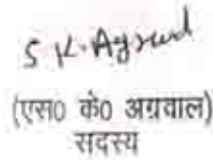 S K. Agrawal
(एस0 के0 अग्रवाल)
सदस्य